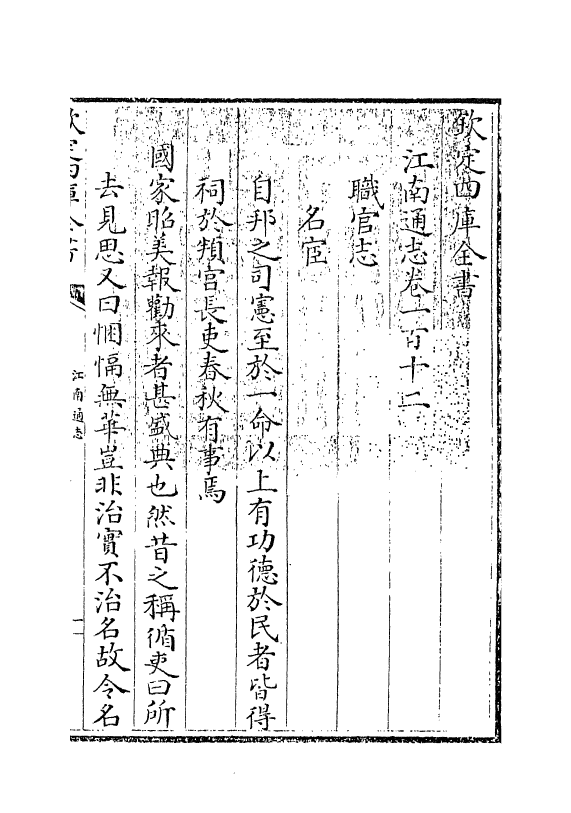 欽定四庫全書
江南通志卷一百十二
職官志
名宦
自邦之司憲至於一命以上有功德於民者皆得
祠於頖宫長吏春秋有事焉
國家昭美報勸來者甚盛典也然昔之稱循吏曰所
去見思又曰悃愊無華豈非治實不治名故令名
欽定四庫全書
江南通志
一